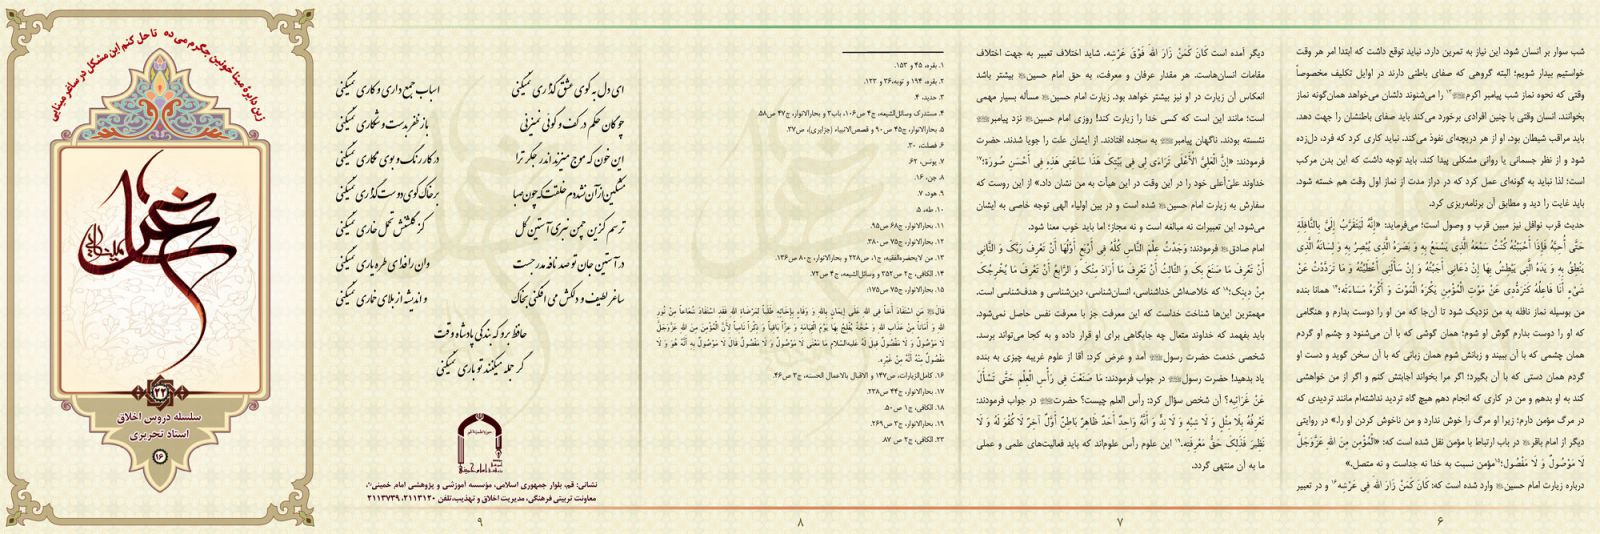 شب سوار بر انسان شود. این نیاز به تمرین دارد. نباید توقع داشت که ابتدا امر هر وقت
خواستیم بیدار شویم؛ البته گروهی که صفای باطنی دارند در اوایل تکلیف مخصوصاً
وقتی که نحوه نماز شب پیامبر اکرم ﷺ۱۳ را می‌شنوند دلشان می‌خواهد همان‌گونه نماز
بخوانند. انسان وقتی با چنین افرادی برخورد می‌کند باید صفای باطنشان را جهت دهد.
باید مراقب شیطان بود. او از هر دریچه‌ای نفوذ می‌کند. نباید کاری کرد که فرد، دل‌زده
شود و از نظر جسمانی یا روانی مشکلی پیدا کند. باید توجه داشت که این بدن مرکب
است؛ لذا نباید به گونه‌ای عمل کرد که در دراز مدت از نماز اول وقت هم خسته شود.
باید غایت را دید و مطابق آن برنامه‌ریزی کرد.
حدیث قرب نوافل نیز مبین قرب و وصول است؛ می‌فرماید: «إِنَّهُ لَيَتَقَرَّبُ إِلَيَّ بِالنَّافِلَةِ
حَتَّى أُحِبَّهُ فَإِذَا أَحْبَبْتُهُ كُنْتُ سَمْعَهُ الَّذِي يَسْمَعُ بِهِ وَ بَصَرَهُ الَّذِي يُبْصِرُ بِهِ وَ لِسَانَهُ الَّذِي
يَنْطِقُ بِهِ وَ يَدَهُ الَّتِي يَبْطِشُ بِهَا إِنْ دَعَانِي أَجَبْتُهُ وَ إِنْ سَأَلَنِي أَعْطَيْتُهُ وَ مَا تَرَدَّدْتُ عَنْ
شَيْءٍ أَنَا فَاعِلُهُ كَتَرَدُّدِي عَنْ مَوْتِ الْمُؤْمِنِ يَكْرَهُ الْمَوْتَ وَ أَكْرَهُ مَسَاءَتَهُ؛۱۴ همانا بنده
من بوسیله نماز نافله به من نزدیک شود تا آن‌جا که من او را دوست بدارم و هنگامی
که او را دوست بدارم گوش او شوم؛ همان گوشی که با آن می‌شنود و چشم او گردم
همان چشمی که با آن ببیند و زبانش شوم همان زبانی که با آن سخن گوید و دست او
گردم همان دستی که با آن بگیرد؛ اگر مرا بخواند اجابتش کنم و اگر از من خواهشی
کند به او بدهم و من در کاری که انجام دهم هیچ گاه تردید نداشته‌ام مانند تردیدی که
در مرگ مؤمن دارم؛ زیرا او مرگ را خوش ندارد و من ناخوش کردن او را.» در روایتی
دیگر از امام باقر در باب ارتباط با مؤمن نقل شده است که: «الْمُؤْمِنَ مِنَ اللَّهِ عَزَّوَجَلَّ
لَا مَوْصُولٌ وَ لَا مَفْصُول؛۱۵مؤمن نسبت به خدا نه جداست و نه متصل.»
درباره زیارت امام حسین وارد شده است که: كَانَ كَمَنْ زَارَ اللَّهَ فِي عَرْشِهِ ۱۶ و در تعبیر
۶
دیگر آمده است كَانَ كَمَنْ زَارَ اللَّهَ فَوْقَ عَرْشِهِ. شاید اختلاف تعبیر به جهت اختلاف
مقامات انسان‌هاست. هر مقدار عرفان و معرفت، به حق امام حسین بیشتر باشد
انعکاس آن زیارت در او نیز بیشتر خواهد بود. زیارت امام حسین مسأله بسیار مهمی
است؛ مانند این است که کسی خدا را زیارت کند! روزی امام حسین نزد پیامبر
نشسته بودند. ناگهان پیامبر به سجده افتادند. از ایشان علت را جویا شدند. حضرت
فرمودند: «إِنَّ الْعَلِيَّ الْأَعْلَى تَرَاءَى لِي فِي بَيْتِكَ هَذَا سَاعَتِي هَذِهِ فِي أَحْسَنِ صُورَةٍ؛۱۷
خداوند علیّ‌أعلی خود را در این وقت در این هیأت به من نشان داد.» از این روست که
سفارش به زیارت امام حسین شده است و در بین اولیاء الهی توجه خاصی به ایشان
می‌شود. این تعبیرات نه مبالغه است و نه مجاز؛ اما باید خوب معنا شود.
امام صادق فرمودند: وَجَدْتُ عِلْمَ النَّاسِ كُلَّهُ فِي أَرْبَعٍ أَوَّلُهَا أَنْ تَعْرِفَ رَبَّكَ وَ الثَّانِي
أَنْ تَعْرِفَ مَا صَنَعَ بِكَ وَ الثَّالِثُ أَنْ تَعْرِفَ مَا أَرَادَ مِنْكَ وَ الرَّابِعُ أَنْ تَعْرِفَ مَا يُخْرِجُكَ
مِنْ دِينِكَ؛۱۸ که خلاصه‌اش خداشناسی، انسان‌شناسی، دین‌شناسی و هدف‌شناسی است.
مهمترین این‌ها شناخت خداست که این معرفت جز با معرفت نفس حاصل نمی‌شود.
باید بفهمد که خداوند متعال چه جایگاهی برای او قرار داده و به کجا می‌تواند برسد.
شخصی خدمت حضرت رسول آمد و عرض کرد: آقا از علوم غریبه چیزی به بنده
یاد بدهید! حضرت رسول در جواب فرمودند: مَا صَنَعْتَ فِي رَأْسِ الْعِلْمِ حَتَّى تَسْأَلَ
عَنْ غَرَائِبِهِ؟ آن شخص سؤال کرد: رأس العلم چیست؟ حضرت در جواب فرمودند:
تَعْرِفُهُ بِلَا مِثْلٍ وَ لَا شِبْهٍ وَ لَا نِدٍّ وَ أَنَّهُ وَاحِدٌ أَحَدٌ ظَاهِرٌ بَاطِنٌ أَوَّلٌ آخِرٌ لَا كُفْوَ لَهُ وَ لَا
نَظِيرَ فَذَلِكَ حَقُّ مَعْرِفَتِهِ.۱۹ این علوم رأس علوم‌اند که باید فعالیت‌های علمی و عملی
ما به آن منتهی گردد.
۷
۱. بقره، ۴۵ و ۱۵۳.
۲. بقره، ۱۹۴ و توبه،۳۶ و ۱۲۳.
۳. حدید، ۴.
۴. مستدرک وسائل‌الشیعه، ج۴ ص۱۰۶، باب۲ و بحارالانوار، ج۴۷ ص۵۸.
۵. بحارالانوار، ج۴۵ ص۹۰ و قصص‌الانبیاء (جزایری)، ص۲۷.
۶. فصلت، ۳۰.
۷. یونس، ۶۲.
۸. جن، ۱۶.
۹. هود، ۷.
۱۰. طه، ۵.
۱۱. بحارالانوار، ج۶۸ ص۹۵.
۱۲. بحارالانوار، ج۷۵ ص۳۸۰.
۱۳. من لایحضره‌الفقیه، ج۱، ص۲۲۸ و بحارالانوار، ج۸۰ ص۱۳۶.
۱۴. الکافی، ج۲ ص۳۵۲ و وسائل‌الشیعه، ج۴ ص۷۲.
۱۵. بحارالانوار، ج۷۵ ص۱۷۵:
قَالَ: مَنِ اسْتَفَادَ أَخاً فِي اللَّهِ عَلَى إِيمَانٍ بِاللَّهِ وَ وَفَاءٍ بِإِخَائِهِ طَلَباً لِمَرْضَاةِ اللَّهِ فَقَدِ اسْتَفَادَ شُعَاعاً مِنْ نُورِ
اللَّهِ وَ أَمَاناً مِنْ عَذَابِ اللَّهِ وَ حُجَّةً يُفْلِجُ بِهَا يَوْمَ الْقِيَامَةِ وَ عِزّاً بَاقِياً وَ ذِكْراً نَامِياً لِأَنَّ الْمُؤْمِنَ مِنَ اللَّهِ عَزَّوَجَلَّ
لَا مَوْصُولٌ وَ لَا مَفْصُولٌ قِيلَ لَهُ عليه‌السلام مَا مَعْنَى لَا مَوْصُولٌ وَ لَا مَفْصُولٌ قَالَ لَا مَوْصُولٌ بِهِ أَنَّهُ هُوَ وَ لَا
مَفْصُولٌ مِنْهُ أَنَّهُ مِنْ غَيْرِهِ.
۱۶. کامل‌الزیارات، ص۱۴۷ و الاقبال بالاعمال الحسنه، ج۳ ص۴۶.
۱۷. بحارالانوار، ج۴۴ ص۲۳۸.
۱۸. الکافی، ج۱ ص۵۰.
۱۹. بحارالانوار، ج۳ ص۲۶۹.
۲۳. الکافی، ج۲ ص ۸۷.
۸
ای دل به کوی عشق گذاری نمیکنی اسباب جمع داری و کاری نمیکنی
چوگان حکم در کف و گویی نمیزنی باز ظفر بدست و شکاری نمیکنی
این خون که موج میزند اندر جگر ترا در کار رنگ و بوی نگاری نمیکنی
مشکین از آن نشد دم خلقت که چون صبا بر خاک کوی دوست گذاری نمیکنی
ترسم کزین چمن نبری آستین گل کز گلشنش تحمل خاری نمیکنی
در آستین جان تو صد نافه مدرجست وان را فدای طره یاری نمیکنی
ساغر لطیف و دلکش می افکنی بخاک و اندیشه از بلای خماری نمیکنی
حافظ برو که بندگی پادشاه وقت
گر جمله میکنند تو باری نمیکنی
نشانی: قم، بلوار جمهوری اسلامی، مؤسسه آموزشی و پژوهشی امام خمینی
معاونت تربیتی فرهنگی، مدیریت اخلاق و تهذیب،تلفن ۲۱۱۳۱۲۰، ۲۱۱۳۷۳۹
۹
زین دایرهٔ مینا خونین جگرم می ده تا حل کنم این مشکل در ساغر مینایی
۲۲
سلسله دروس اخلاق
استاد تحریری
۱۶